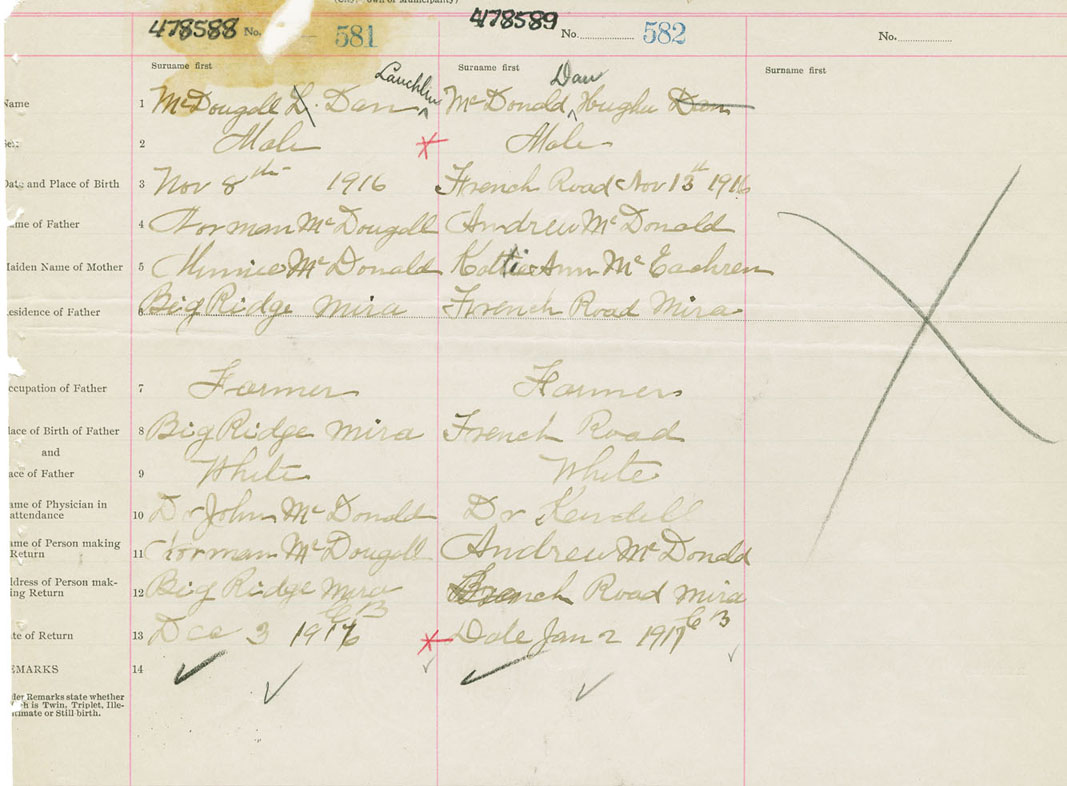 (City, Town or Municipality)
478588 No. 581 478589 No. 582 No.
Surname first Surname first Surname first
Lauchlin Dan
Name 1 McDougall L. Dan McDonald Hughu Dan
Sex 2 Male Male
Date and Place of Birth 3 Nov 8th 1916 French Road Nov 13th 1916
ame of Father 4 Norman McDougall Andrew McDonald
Maiden Name of Mother 5 Minnie McDonald Katie Ann McEachren
Residence of Father 6 Big Ridge Mira French Road Mira
ccupation of Father 7 Farmer Farmer
lace of Birth of Father 8 Big Ridge Mira French Road
and
ace of Father 9 White White
ame of Physician in
attendance 10 Dr John McDonald Dr Kendell
ame of Person making
Return 11 Norman McDougall Andrew McDonald
ddress of Person mak-
ing Return 12 Big Ridge Mira French Road Mira
ate of Return 13 Dec 3 1916 Date Jan 2 1917
EMARKS 14
der Remarks state whether
h is Twin, Triplet, Ille-
timate or Still birth.